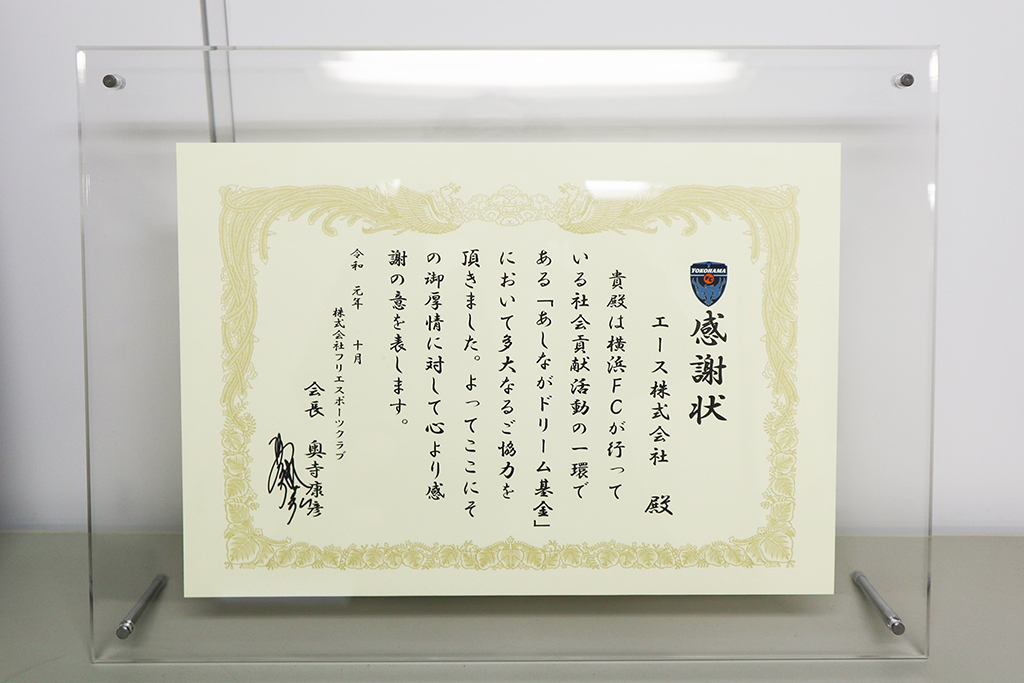 YOKOHAMA
FC
感謝状
エース株式会社 殿
貴殿は横浜FCが行って
いる社会貢献活動の一環で
ある「あしながドリーム基金」
において多大なるご協力を
頂きました。よってここにそ
の御厚情に対して心より感
謝の意を表します。
令和 元年 十月
株式会社フリエスポーツクラブ
会長 奥寺康彦